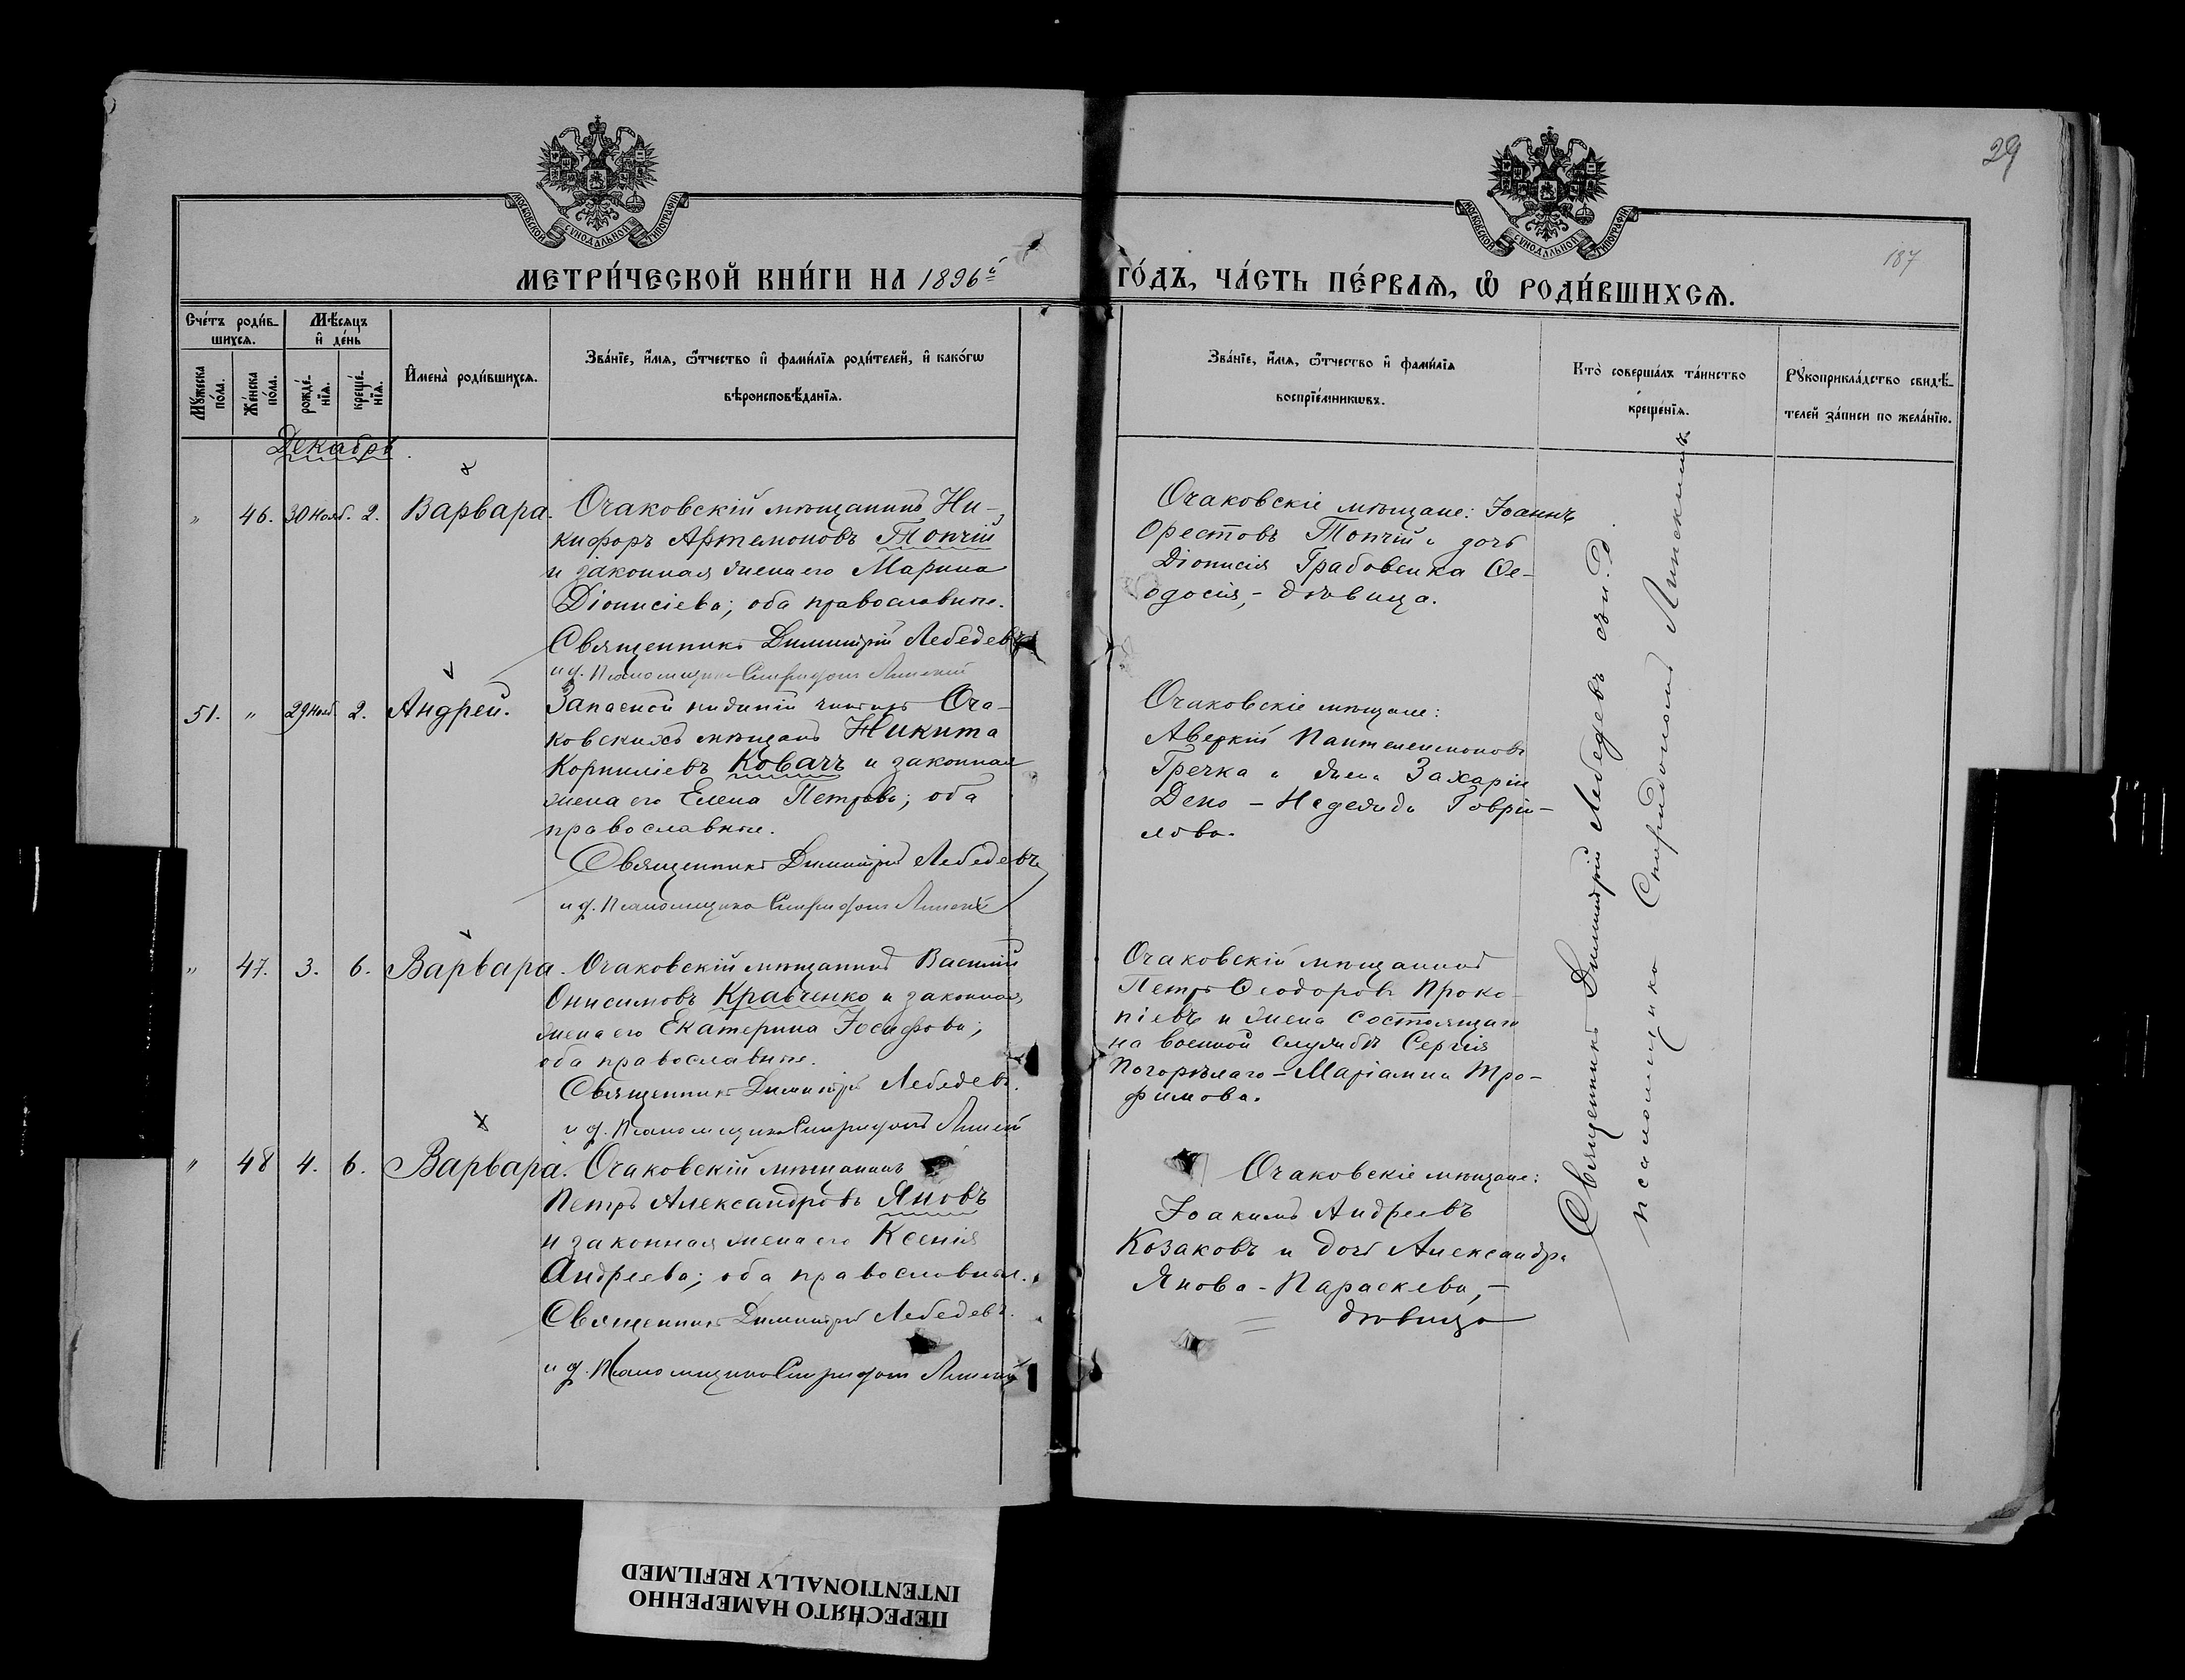 29
187
МОСКОВСКОЙ СУНОДАЛЬНОЙ ТИПОГРАФІИ
МОСКОВСКОЙ СУНОДАЛЬНОЙ ТИПОГРАФІИ
МЕТРИ́ЧЕСКОЙ КНИ́ГИ НА 1896й
ГО́ДЪ, ЧА́СТЬ ПЕ́РВАѦ, Ѽ РОДИ́ВШИХСѦ.
Сче́тъ роди́в-
шихсѧ.
Мѣ́сѧцъ
и҆ де́нь
Мꙋ́жеска
по́ла.
Же́нска
по́ла.
рожде́-
нїѧ.
креще́-
нїѧ.
И҆мена̀ роди́вшихсѧ.
Зва́нїе, и҆́мѧ, ѻ҆́тчество и҆ фами́лїѧ роди́телей, и҆ како́гѡ
вѣроисповѣ́данїѧ.
Зва́нїе, и҆́мѧ, ѻ҆́тчество и҆ фами́лїѧ
воспрїе́мникѡвъ.
Кто̀ соверша́лъ та́инство
креще́нїѧ.
Рꙋкоприкла́дство свидѣ́-
телей за́писи по жела́нїю.
Декабрь.
" 46. 30 Нояб. 2. Варвара.
Очаковскій мѣщанинъ Ни-
кифоръ Артемоновъ Топчій
и законная жена его Марина
Діонисіева; оба православные.
Священникъ Димитрій Лебедевъ
и д. Псаломщика Спиридонъ Липскій
Очаковскіе мѣщане: Іоаннъ
Орестовъ Топчій и дочь
Діонисія Грабовенка Ѳе-
одосія, - дѣвица.
51. " 29 Нояб. 2. Андрей.
Запасной чиномъ Оча-
ковскихъ мѣщанъ Никита
Корниліевъ Ковачъ и законная
жена его Елена Петрова; оба
православные.
Священникъ Димитрій Лебедевъ
и д. Псаломщика Спиридонъ Липскій
Очаковскіе мѣщане:
Аверкій Пантелеимоновъ
Гречка и жена Захаріи
Дено - Надежда Гаврі-
лова.
" 47. 3. 6. Варвара.
Очаковскій мѣщанинъ Василій
Онисимовъ Кравченко и законная
жена его Екатерина Іосифова;
оба православные.
Священникъ Димитрій Лебедевъ.
и д. Псаломщика Спиридонъ Липскій
Очаковскій мѣщанинъ
Петръ Ѳеодоровъ Проко-
піевъ и жена состоящаго
на военной службѣ Сергія
Погорѣлаго - Маріамна Тро-
фимова.
" 48 4. 6. Варвара.
Очаковскій мѣщанинъ
Петръ Александровъ Яновъ
и законная жена его Ксенія
Андреева; оба православные.
Священникъ Димитрій Лебедевъ.
и д. Псаломщика Спиридонъ Липскій
Очаковскіе мѣщане:
Іоакимъ Андреевъ
Козаковъ и дочь Александра
Янова - Параскева, -
дѣвица
Священникъ Димитрій Лебедевъ съ и. д.
псаломщика Спиридономъ Липскимъ.
ПЕРЕСНЯТО НАМЕРЕННО
INTENTIONALLY REFILMED